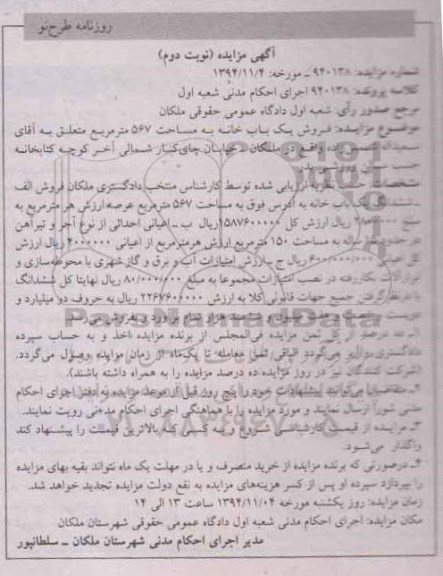 روزنامه طرح‌نو
آگهی مزایده (نوبت دوم)
شماره مزایده: ۹۴۰۱۳۸ ـ مورخه: ۱۳۹۴/۱۱/۴
کلاسه پرونده: ۹۴۰۱۳۸ اجرای احکام مدنی شعبه اول
مرجع صدور رأی: شعبه اول دادگاه عمومی حقوقی ملکان
موضوع مزایده: فروش یک باب خانه به مساحت ۵۶۷ مترمربع متعلق به آقای
سعیداله شمس واقع در ملکان خیابان چای‌کنار شمالی آخر کوچه کتابخانه
حسب
مشخصات حسب نظریه ارزیابی شده توسط کارشناس منتخب دادگستری ملکان فروش الف
ـ ششدانگ یک باب خانه به آدرس فوق به مساحت ۵۶۷ مترمربع عرصه ارزش هر مترمربع به
مبلغ ۲/۸۰۰/۰۰۰ ریال ارزش کل ۱۵۸۷۶۰۰۰۰۰ریال ب ـ اعیانی احداثی از نوع آجر و تیرآهن
در حدود ساله به مساحت ۱۵۰ مترمربع ارزش هرمترمربع از اعیانی ۴۰۰۰۰۰۰ ریال ارزش
کل اعیانی ۶۰۰/۰۰۰/۰۰۰ ریال ج ـ ارزش امتیازات آب و برق و گاز شهری با محوطه‌سازی و
ابزارآلات بکاررفته در نصب امتیازات مجموعا به مبلغ ۸۰/۰۰۰/۰۰۰ ریال نهایتا کل ششدانگ
با در نظر گرفتن جمیع جهات قانونی کلا به ارزش ۲۲۶۷۶۰۰۰۰۰ ریال به حروف دو میلیارد و
دویست و شصت و هفت میلیون و ششصد هزار ریال برآورد و بفروش می‌رسد.
۱ـ ده درصد از کل ثمن مزایده فی‌المجلس از برنده مزایده اخذ و به حساب سپرده
دادگستری واریز می‌گردد الباقی ثمن معامله تا یک‌ماه از زمان مزایده وصول می‌گردد.
(شرکت کنندگان نیز در روز مزایده ده درصد مزایده را به همراه داشته باشند).
۲ـ متقاضیان می‌توانند پیشنهادات خود را پنج روز قبل از موعد مزایده به دفتر اجرای احکام
مدنی شورا ارسال نمایند و مورد مزایده را با هماهنگی اجرای احکام مدنی رویت نمایند.
۳ـ مزایده از قیمت کارشناسی شروع و به کسی که بالاترین قیمت را پیشنهاد کند
واگذار می‌شود.
۴ـ درصورتی که برنده مزایده از خرید منصرف و یا در مهلت یک ماه نتواند بقیه بهای مزایده
را بپردازد سپرده او پس از کسر هزینه‌های مزایده به نفع دولت مزایده تجدید خواهد شد.
زمان مزایده: روز یکشنبه مورخه ۱۳۹۴/۱۱/۰۴ ساعت ۱۳ الی ۱۴
مکان مزایده: اجرای احکام مدنی شعبه اول دادگاه عمومی حقوقی شهرستان ملکان
مدیر اجرای احکام مدنی شهرستان ملکان ـ سلطانپور
ParsNamadData